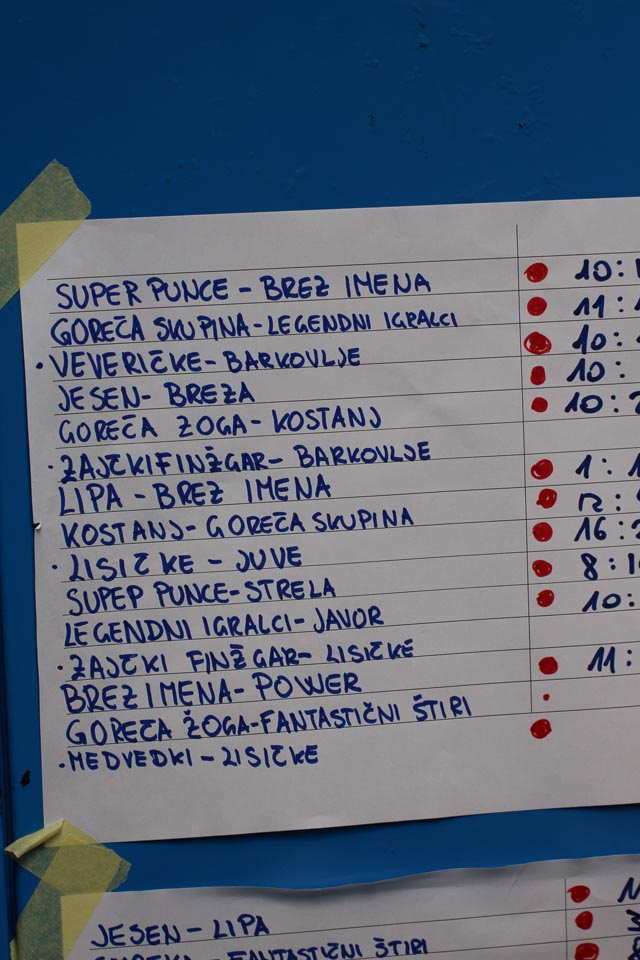 SUPER PUNCE - BREZ IMENA 10:
GOREČA SKUPINA - LEGENDNI IGRALCI 11:
• VEVERIČKE - BARKOVLJE 10:
JESEN - BREZA 10:
GOREČA ŽOGA - KOSTANJ 10:
• ZAJČKI FINŽGAR - BARKOVLJE
LIPA - BREZ IMENA 1:
KOSTANJ - GOREČA SKUPINA 12:
• LISIČKE - JUVE 16:
SUPER PUNCE - STRELA 8:
LEGENDNI IGRALCI - JAVOR 10:
• ZAJČKI FINŽGAR - LISIČKE
BREZ IMENA - POWER 11:
GOREČA ŽOGA - FANTASTIČNI ŠTIRI
• MEDVEDKI - LISIČKE
JESEN - LIPA
- FANTASTIČNI ŠTIRI